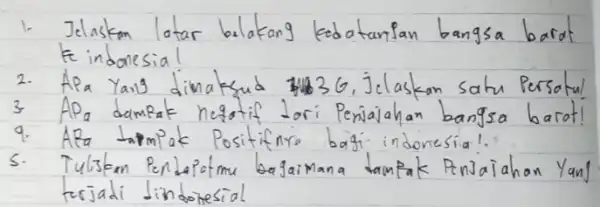 1. Jelaskan latar belakang kedatangan bangsa barat
ke indonesia!
2. Apa Yang dimaksud 3G, jelaskan satu Persatu!
3 Apa dampak negatif dari Penjajahan bangsa barat!
4. Apa dampak Positifnya bagi indonesia!.
5. Tuliskan Pendapatmu bagaimana dampak Penjajahan Yang
terjadi diindonesia!